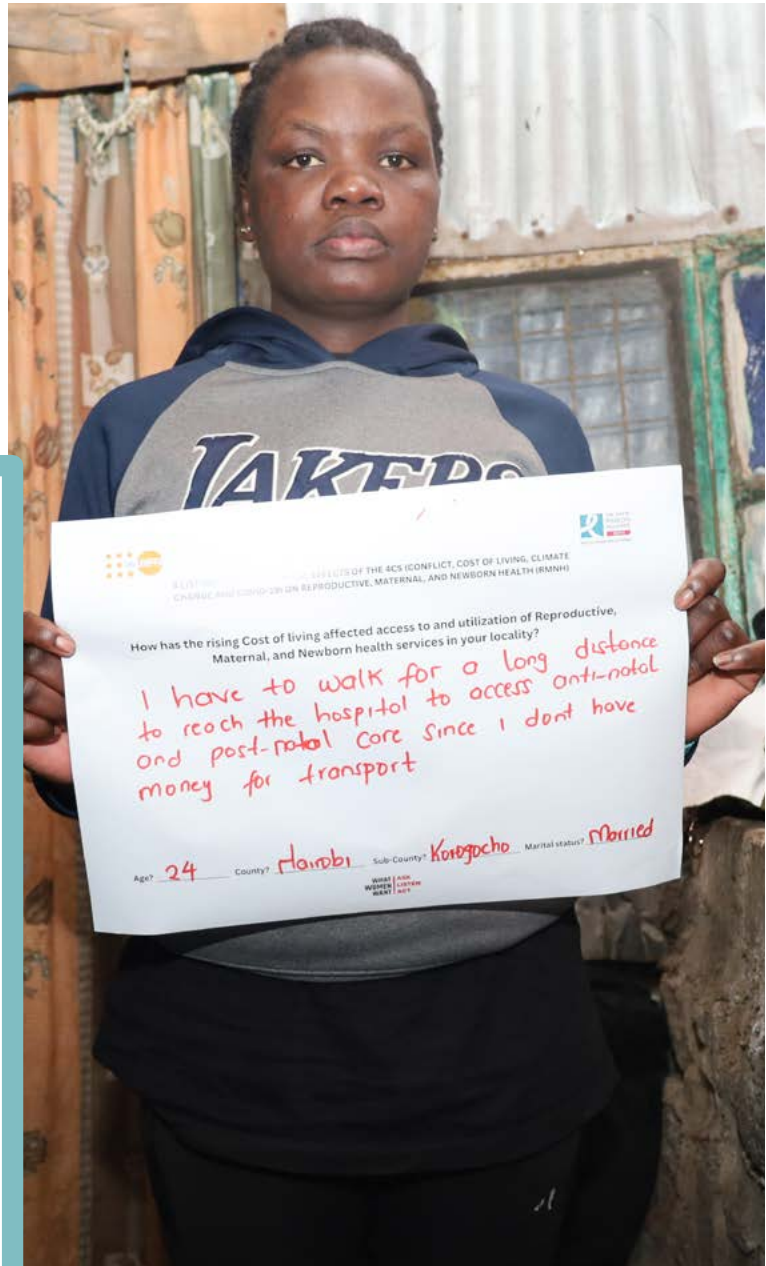 LAKERS
EFFECTS OF THE 4CS (CONFLICT, COST OF LIVING, CLIMATE
CHANGE AND COVID-19) ON REPRODUCTIVE, MATERNAL, AND NEWBORN HEALTH (RMNH)
How has the rising Cost of living affected access to and utilization of Reproductive,
Maternal, and Newborn health services in your locality?
I have to walk for a long distance
to reach the hospital to access anti-natal
and post-natal care since I dont have
money for transport
Age? 24 County? Nairobi Sub-County? Korogocho Marital status? Married
WHAT WOMEN WANT ASK LISTEN ACT